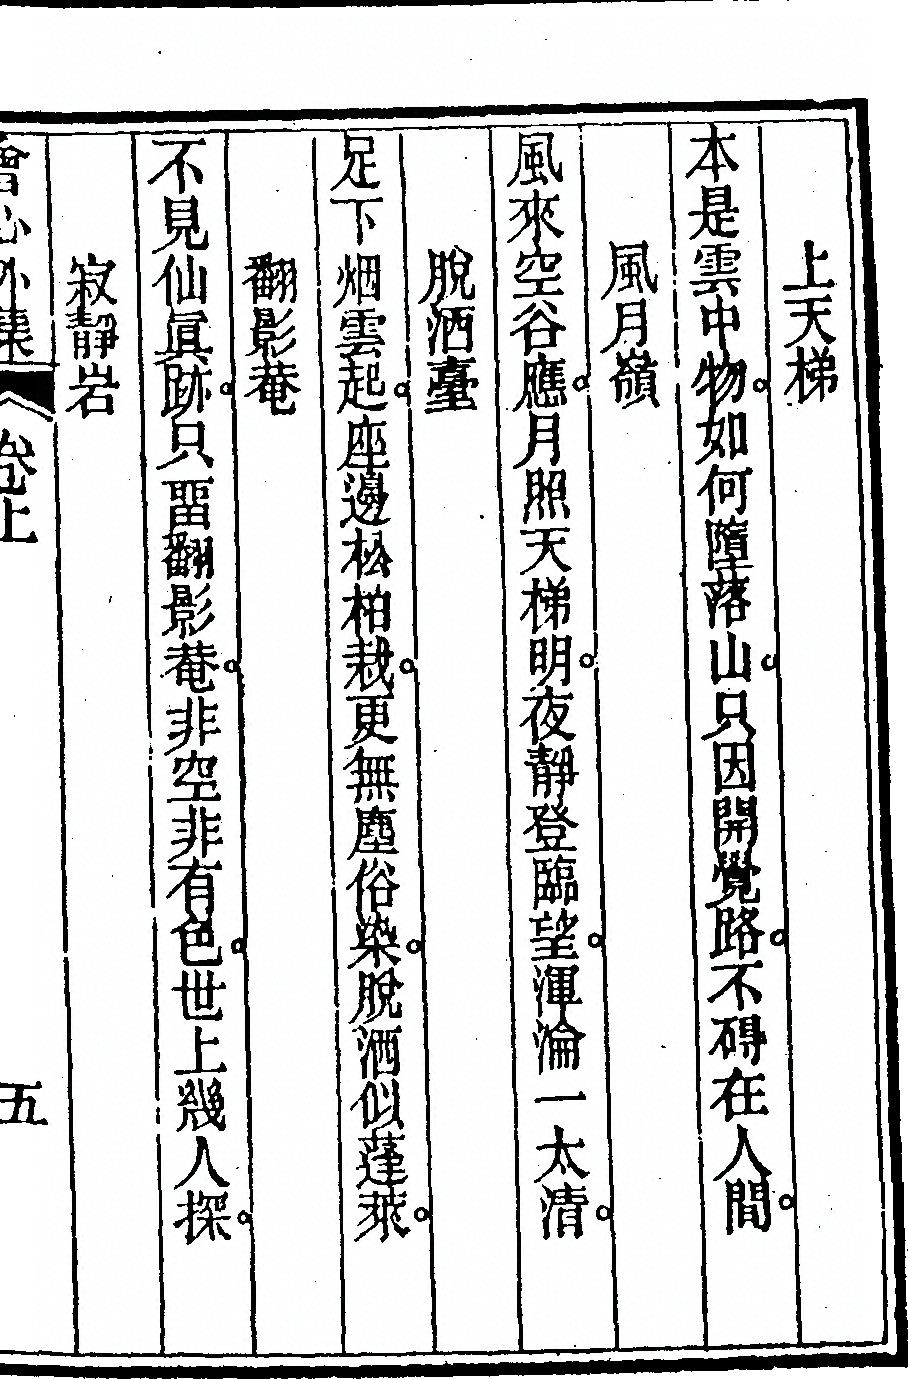 上天梯
本是雲中物。如何墮落山。只因開覺路。不碍在人間。
風月嶺
風來空谷應。月照天梯明。夜靜登臨望。渾淪一太清。
脫洒臺
足下烟雲起。座邊松柏栽。更無塵俗染。脫洒似蓬萊。
翻影菴
不見仙眞跡。只畱翻影菴。非空非有色。世上幾人探。
寂靜岩
會心外集 卷上 五